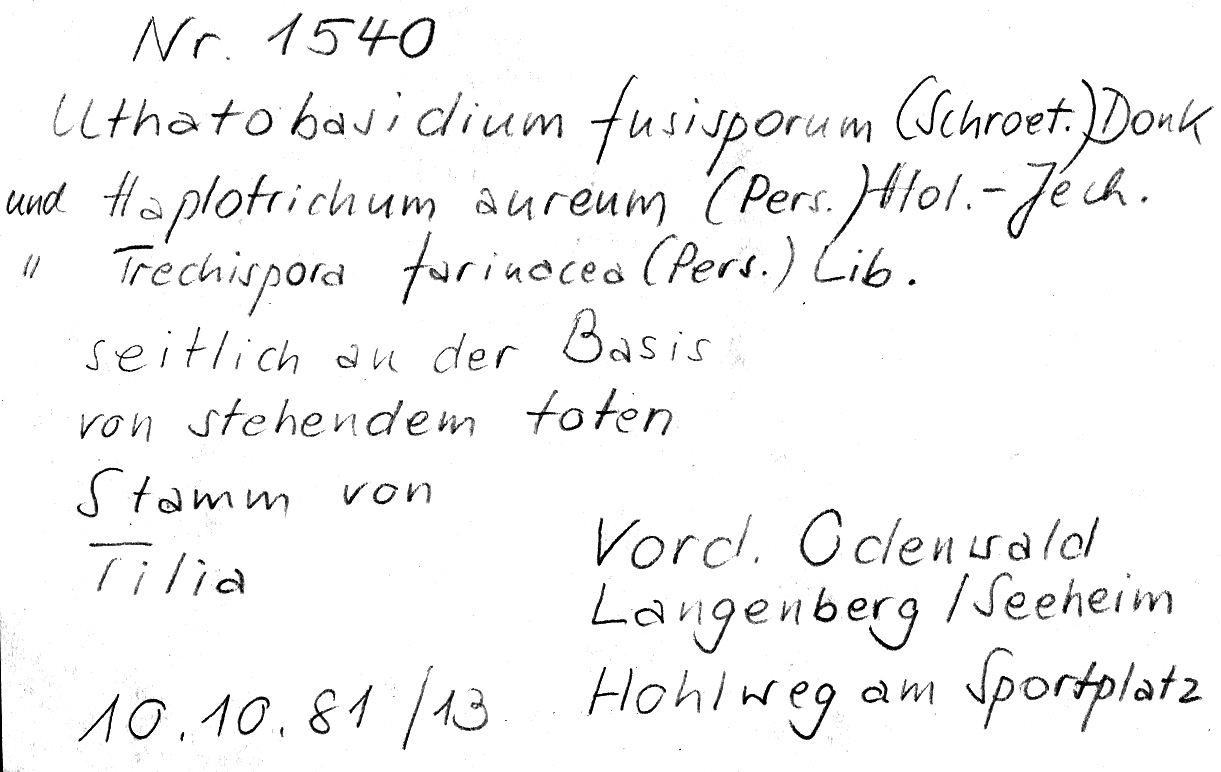 Nr. 1540
Uthatobasidium fusisporum (Schroet.) Donk
und Haplotrichum aureum (Pers.) Hol.-Jech.
" Trechispora farinacea (Pers.) Lib.
seitlich an der Basis
von stehendem toten
Stamm von
Tilia
Vord. Odenwald
Langenberg / Seeheim
Hohlweg am Sportplatz
10.10.81 /13